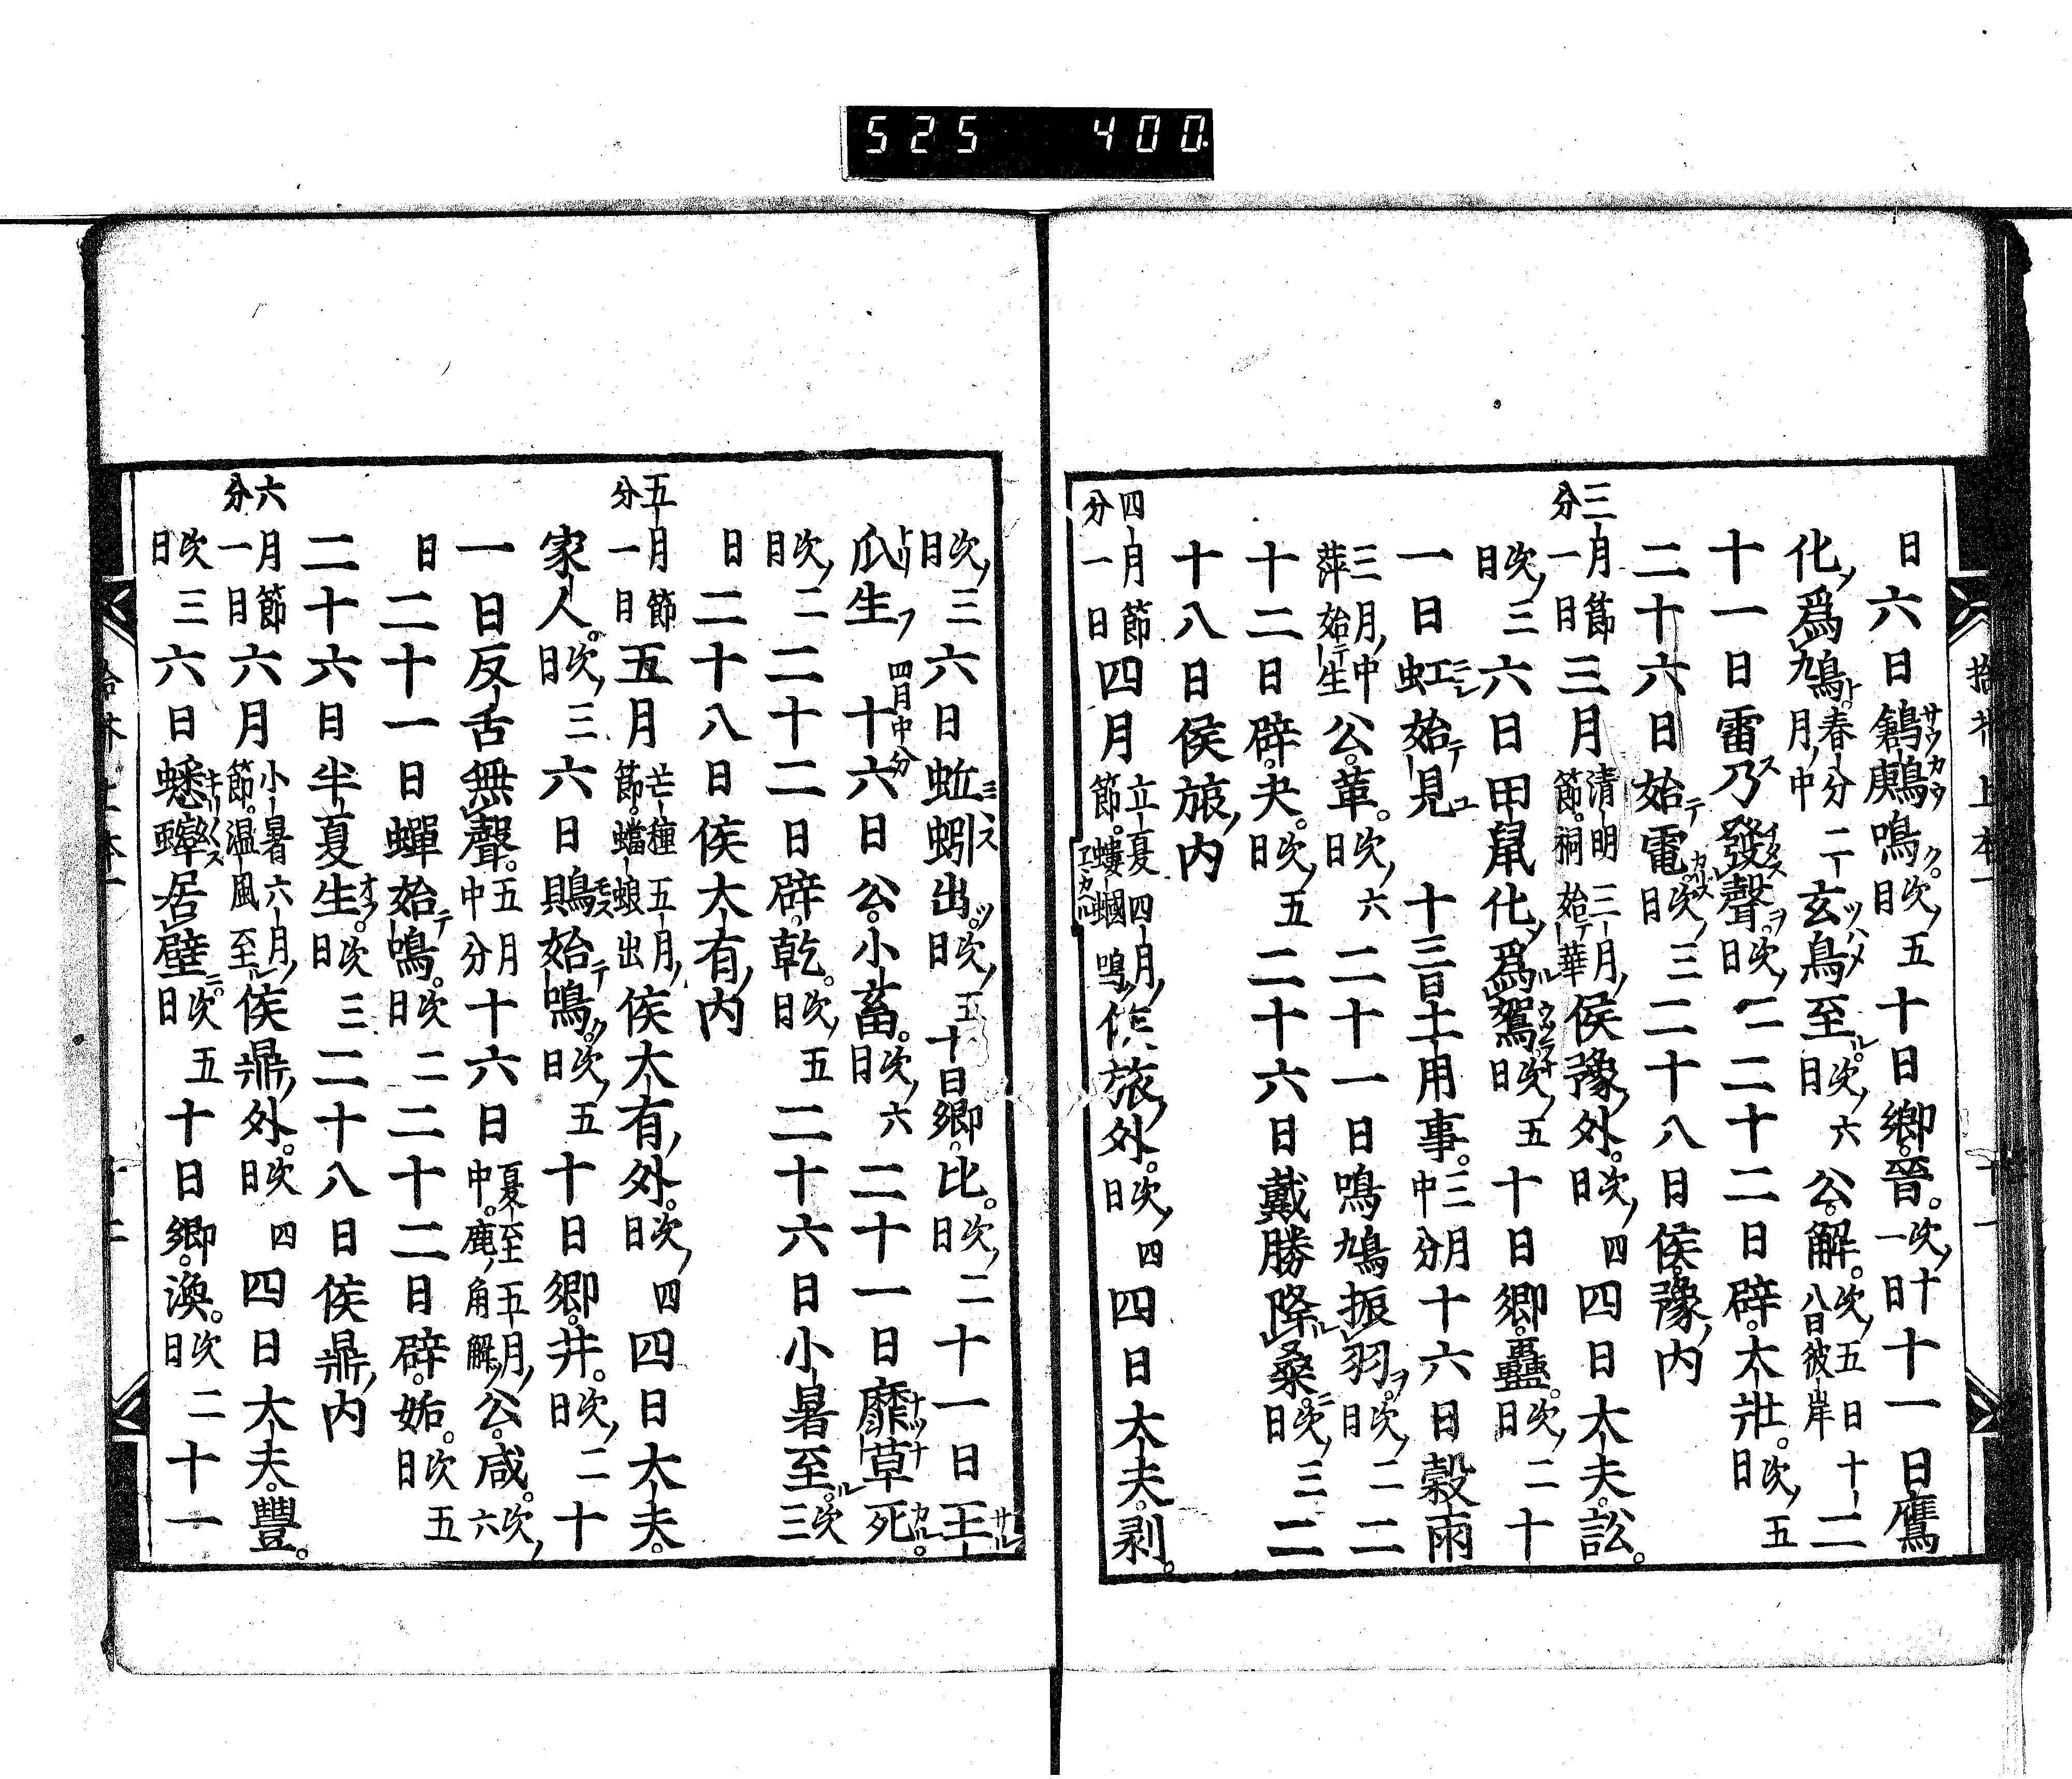 525 400
日六日鶬鶊鳴次五日十日卿晉次十一日十一日鷹
化爲鳩春分二月中玄鳥至次六日公解次五日十八日彼岸二
十一日雷乃發聲次一日二十二日辟大壯次五日
二十六日始電次三日二十八日侯豫内
三月節分一日三月清明三月節桐始華侯豫外次四日四日大夫訟
次三日六日田鼠化爲鴽次五日十日卿蠱次二日十
一日虹始見十三日土用事三月中分十六日穀雨
三月中萍始生公革次六日二十一日鳴鳩振羽次二日二
十二日辟夬次五日二十六日戴勝降桑次三日二
十八日侯旅内
四月節分一日四月立夏四月節螻蟈鳴侯旅外次四日四日大夫剥
次三日六日蚯蚓出次五日十日卿比次二日十一日王
瓜生四月中分十六日公小畜次六日二十一日靡草死
次二日二十二日辟乾次五日二十六日小暑至次三
日二十八日侯大有内
五月節分一日五月芒種五月節蟷蜋出侯大有外次四日四日大夫
家人次三日六日鵙始鳴次五日十日卿井次二日十
一日反舌無聲五月中分十六日夏至五月中鹿角解公咸次六
日二十一日蟬始鳴次二日二十二日辟姤次五日
二十六日半夏生次三日二十八日侯鼎内
六月節分一日六月小暑六月節温風至侯鼎外次四日四日大夫豐
次三日六日蟋蟀居壁次五日十日卿渙次二日十一